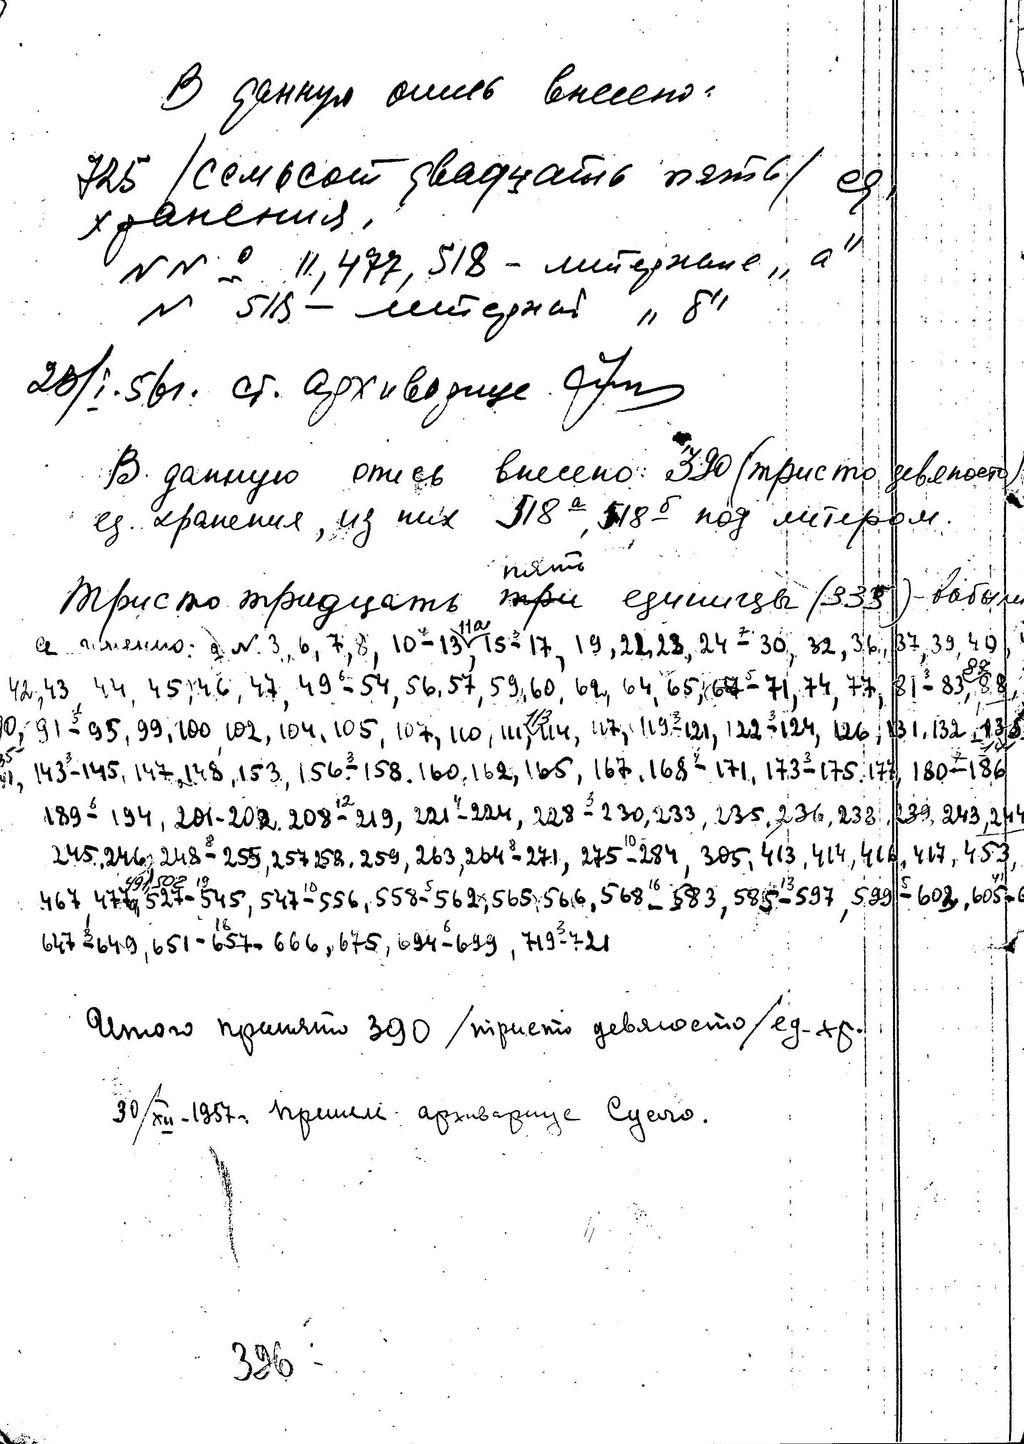 В данную опись внесено:
725 /семьсот двадцать пять/ ед.
хранения.
NN о 11, 477, 518 - литерные „а"
N 518 - литерный „б"
20/I.56г. ст. архиварице
В данную опись внесено: 390 (триста девяносто)
ед. хранения, из них 518 а, 518 б под литером.
пять
Тристо тридцать три единицы (335) - выбыли
а именно: N 3, 6, 7, 8, 10-13, 11а, 15-17, 19, 22, 23, 24-30, 32, 36, 37, 39, 40,
42, 43 44, 45, 46, 47, 49-54, 56, 57, 59, 60, 62, 64, 65, 67-71, 74, 77, 81-83, 88,
91-95, 99, 100, 102, 104, 105, 107, 110, 111, 113, 114, 117, 119-121, 122-124, 126, 131, 132, 135
143-145, 147, 148, 153, 156-158, 160, 162, 165, 167, 168-171, 173-175, 177, 180-186
189-194, 201-202, 208-219, 221-224, 228-230, 233, 235, 236, 238, 239, 243, 244
245, 246, 248-255, 257 258, 259, 263, 264-271, 275-284, 305, 413, 414, 416, 417, 453,
467, 477, 491, 502, 527-545, 547-556, 558-562, 565, 566, 568-583, 585-597, 599-603, 605-6
647-649, 651-657- 666, 675, 694-699, 719-721
Итого принято 390 /тристо девяносто/ ед-хр.
30/XII-1957г. приняла архиварице
396